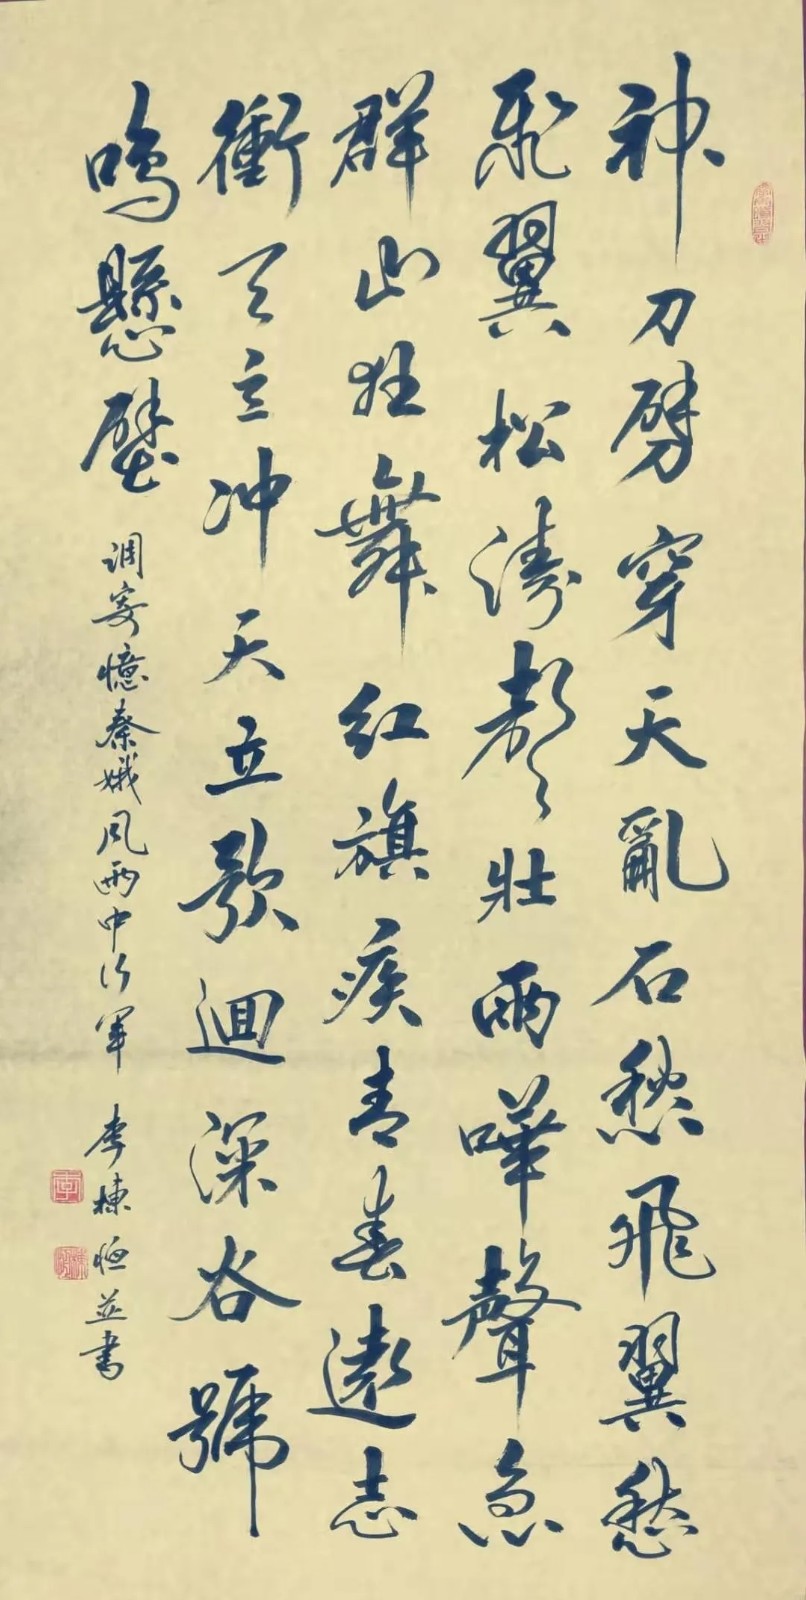 神刀劈穿天亂石愁飛翼愁
飛翼松濤壯雨嘩聲急
群山狂舞红旗疾青春遠志
衝天立冲天立歌迴深谷號
鳴懸壁
调寄憶秦娥風雨中行軍 李棟恒並書